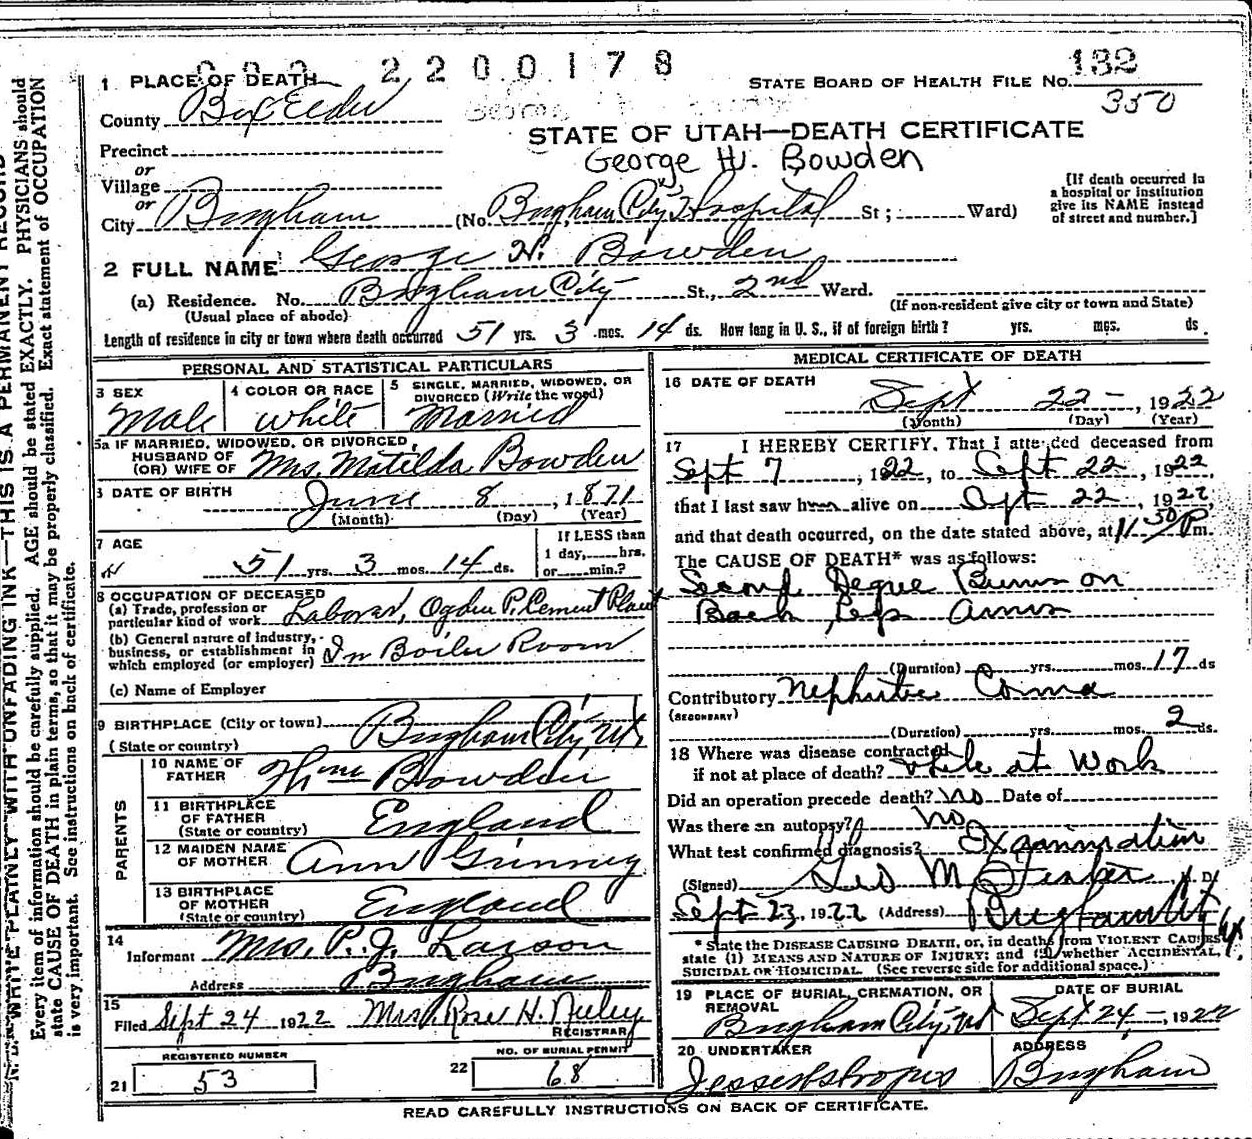 2200178
1 PLACE OF DEATH
STATE BOARD OF HEALTH FILE No. 132
350
County Box Elder
STATE OF UTAH—DEATH CERTIFICATE
George H. Bowden
Precinct
or
Village
or
City Brigham (No. Brigham City Hospital St; Ward)
[If death occurred in a hospital or institution give its NAME instead of street and number.]
2 FULL NAME George H. Bowden
(a) Residence. No. Brigham City St., 2nd Ward.
(Usual place of abode)
(If non-resident give city or town and State)
Length of residence in city or town where death occurred 51 yrs. 3 mos. 14 ds. How long in U. S., if of foreign birth? yrs. mos. ds.
PERSONAL AND STATISTICAL PARTICULARS
3 SEX Male
4 COLOR OR RACE White
5 SINGLE, MARRIED, WIDOWED, OR DIVORCED (Write the word) Married
5a IF MARRIED, WIDOWED, OR DIVORCED, HUSBAND OF (OR) WIFE OF Mrs. Matilda Bowden
6 DATE OF BIRTH June 8, 1871
(Month) (Day) (Year)
7 AGE 51 yrs. 3 mos. 14 ds.
If LESS than 1 day, hrs. or min.?
8 OCCUPATION OF DECEASED
(a) Trade, profession or particular kind of work Laborer, Ogden P. Cement Plant
(b) General nature of industry, business, or establishment in which employed (or employer) In Boiler Room
(c) Name of Employer
9 BIRTHPLACE (City or town) (State or country) Brigham City, Ut.
PARENTS
10 NAME OF FATHER Bowden
11 BIRTHPLACE OF FATHER (State or country) England
12 MAIDEN NAME OF MOTHER Ann
13 BIRTHPLACE OF MOTHER (State or country) England
14 Informant Mrs. P. J. Larson
Address Brigham
15 Filed Sept 24 1922 Mrs Rose H. Neeley
REGISTRAR
21 REGISTERED NUMBER 53
22 NO. OF BURIAL PERMIT 68
MEDICAL CERTIFICATE OF DEATH
16 DATE OF DEATH
Sept 22 - , 1922
(Month) (Day) (Year)
17 I HEREBY CERTIFY, That I attended deceased from
Sept 7, 1922, to Sept 22, 1922,
that I last saw him alive on Sept 22, 1922
and that death occurred, on the date stated above, at 11 30 P m.
The CAUSE OF DEATH* was as follows:
Second Degree Burns on
Back Legs Arms
(Duration) yrs. mos. 17 ds
Contributory Coma
(SECONDARY)
(Duration) yrs. mos. 2 ds.
18 Where was disease contracted
if not at place of death? while at Work
Did an operation precede death? No Date of
Was there an autopsy? No
What test confirmed diagnosis? Examination
(Signed) Geo M Fister, M. D.
Sept 23, 1922 (Address) Brigham Ut
* State the DISEASE CAUSING DEATH, or, in deaths from VIOLENT CAUSES, state (1) MEANS AND NATURE OF INJURY; and (2) whether ACCIDENTAL, SUICIDAL OR HOMICIDAL. (See reverse side for additional space.)
19 PLACE OF BURIAL, CREMATION, OR REMOVAL Brigham City, Ut
DATE OF BURIAL Sept 24 -, 1922
20 UNDERTAKER
ADDRESS Brigham
READ CAREFULLY INSTRUCTIONS ON BACK OF CERTIFICATE.
N. B.—WRITE PLAINLY WITH UNFADING INK—THIS IS A PERMANENT RECORD
Every item of information should be carefully supplied. AGE should be stated EXACTLY. PHYSICIANS should
state CAUSE OF DEATH in plain terms, so that it may be properly classified. Exact statement of OCCUPATION
is very important. See instructions on back of certificate.